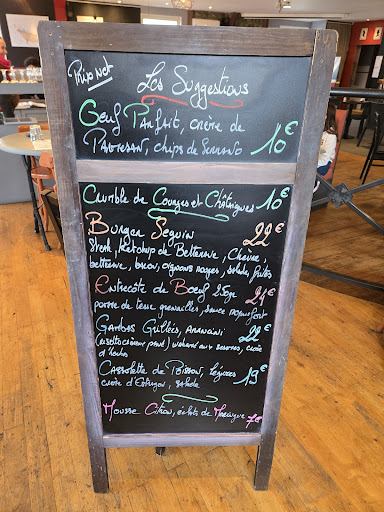 Prix Net
Les Suggestions
Oeuf Parfait, crème de
Parmesan, chips de Serrano 10€
Crumble de Courges et Châtaignes 10€
Burger Seguin 22€
Steak, Ketchup de Betterave, Chèvre,
betterave, bacon, oignons rouges, salade, frites
Entrecôte de Boeuf 250gr 24€
pomme de terre grenailles, sauce roquefort
Gambas Grillées, Arancini 22€
(risotto crémeux pané) aux saveurs, crème
d'
Cassolette de Poisson, légumes 19€
crème d'Estragon, salade
Mousse Citron, éclats de Meringue 7€